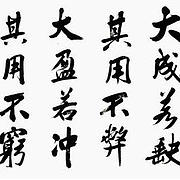 大成若缺
其用不弊
大盈若冲
其用不窮